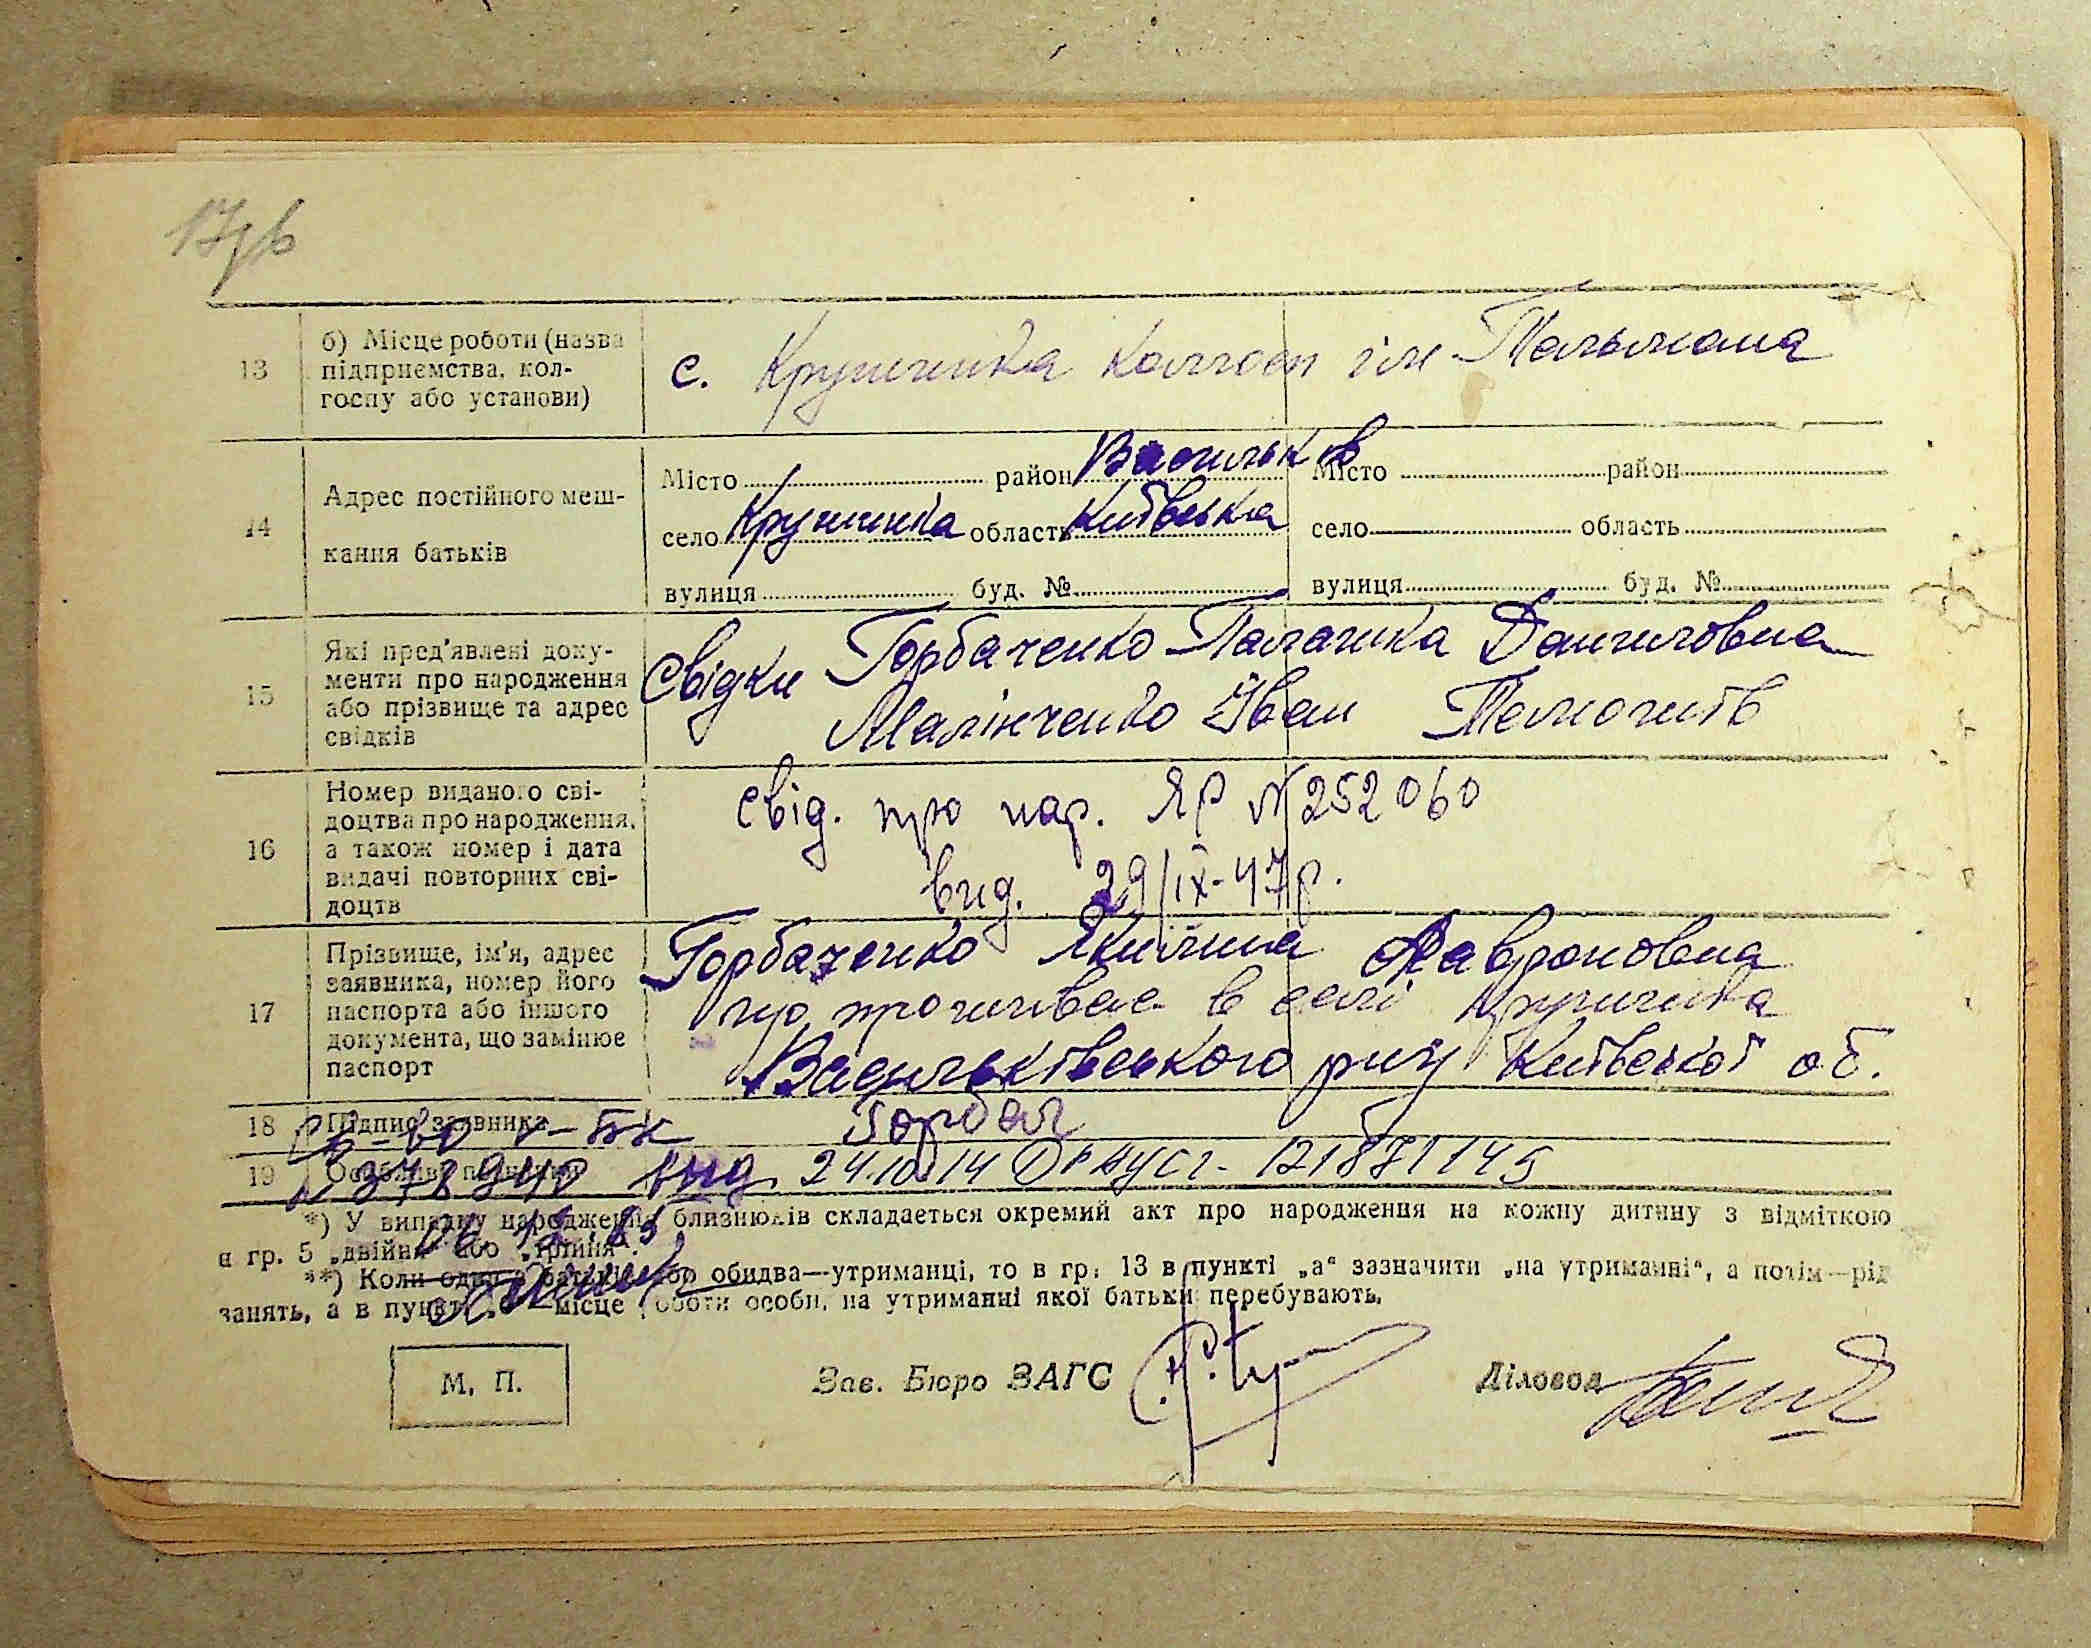 17зв
13 б) Місце роботи (назва
підприємства, кол-
госпу або установи)
с. Кругинка колгосп ім Тельмана
14 Адрес постійного меш-
кання батьків
Місто район Васильків Місто район
село Кругинка область Київська село область
вулиця буд. № вулиця буд. №
15 Які пред'явлені доку-
менти про народження
або прізвище та адрес
свідків
Свідки Горбаченко Палажка Даниловна
Малінченко Іван
16 Номер виданого сві-
доцтва про народження,
а також номер і дата
видачі повторних сві-
доцтв
Свід. про нар. ЯР N 252060
вид. 29/ІХ-47р.
17 Прізвище, ім'я, адрес
заявника, номер його
паспорта або іншого
документа, що замінює
паспорт
Горбаченко Якилина
що проживає в селі Кругинка
Васильківського р-ну Київської об.
18 Підпис заявника Горбач
19 Особливі
378940 вид. 24.10.14
*) У випадку народження близнюків складається окремий акт про народження на кожну дитину з відміткою
в гр. 5 „двійня" або „трійня".
**) Коли один з батьків або обидва—утриманці, то в гр. 13 в пункті „а" зазначити „на утриманні", а потім—рід
занять, а в пункті „б"—місце роботи особи, на утриманні якої батьки перебувають.
М. П. Зав. Бюро ЗАГС Діловод